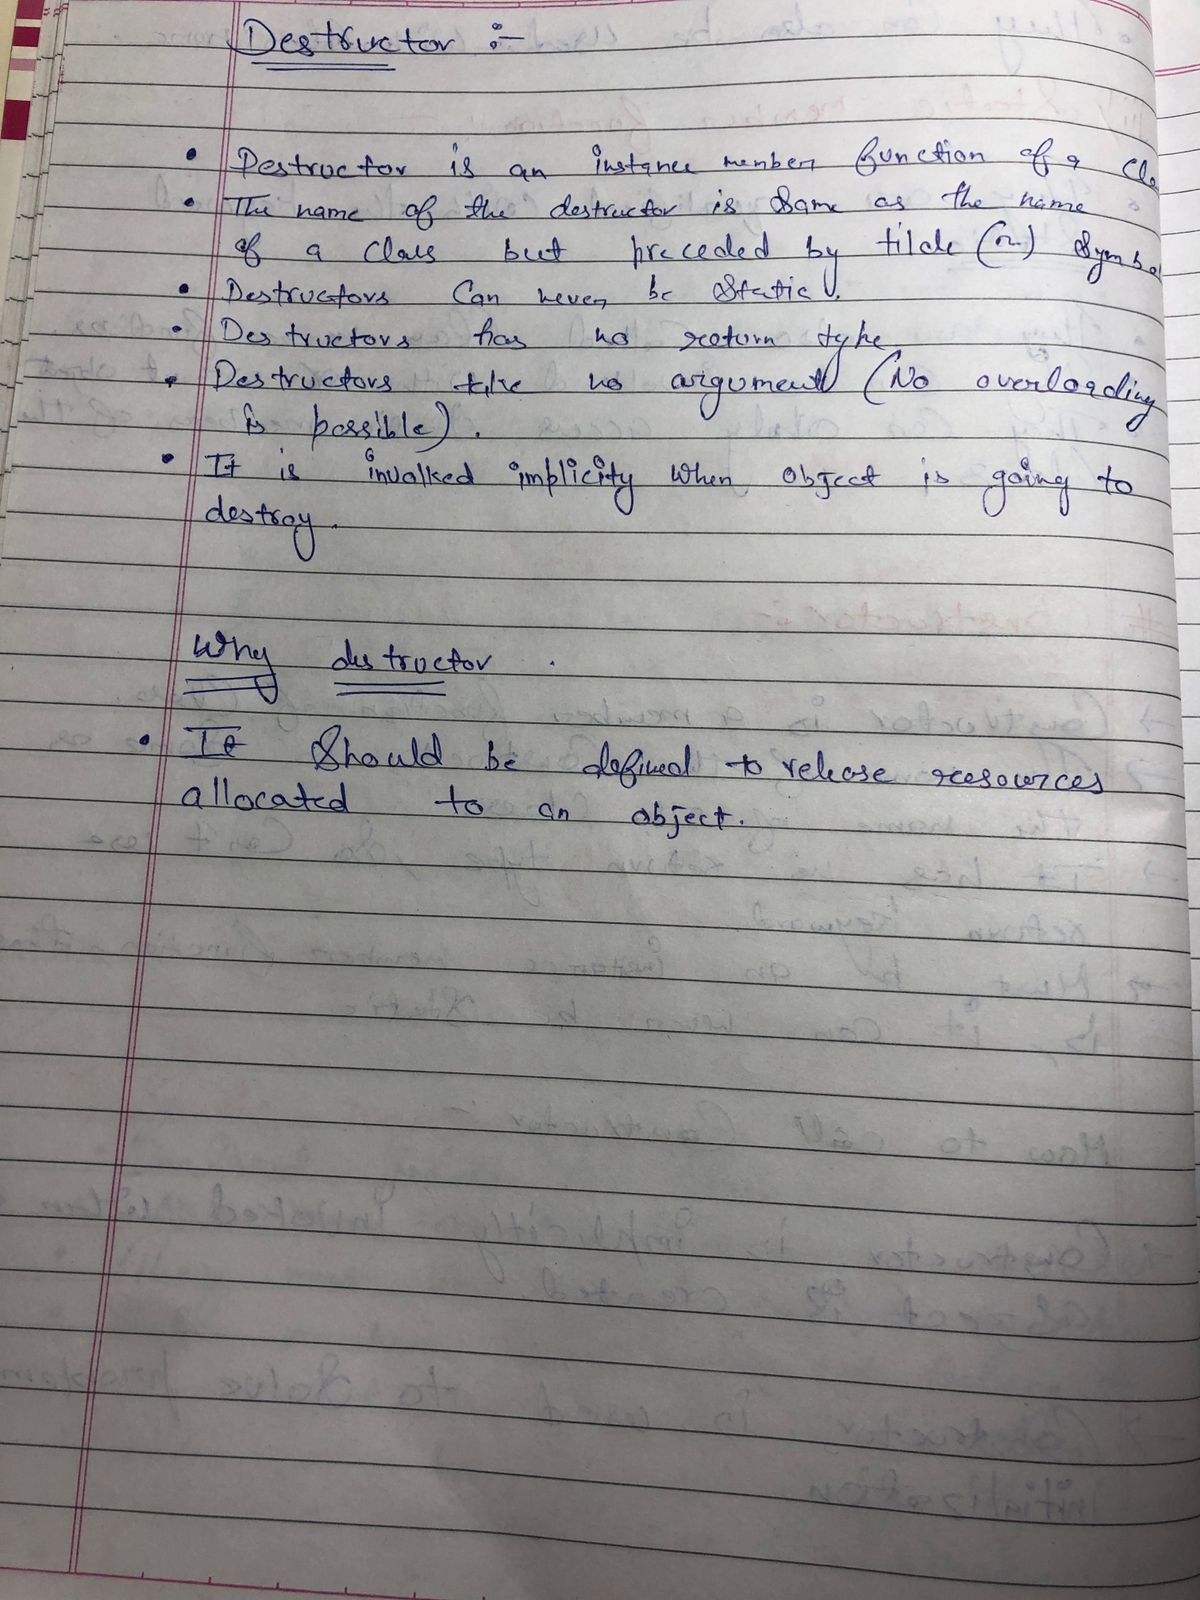 Destructor :-
• Destructor is an instance member function of a Cla
• The name of the destructor is same as the name
of a class but preceded by tilde (~) Symbo
• Destructors Can never be static.
• Destructors has no return type
• Destructors take no argument (No overloading
is possible).
• It is invalked implicity when object is going to
destroy.
Why destructor .
• It Should be defined to release resources
allocated to an object.